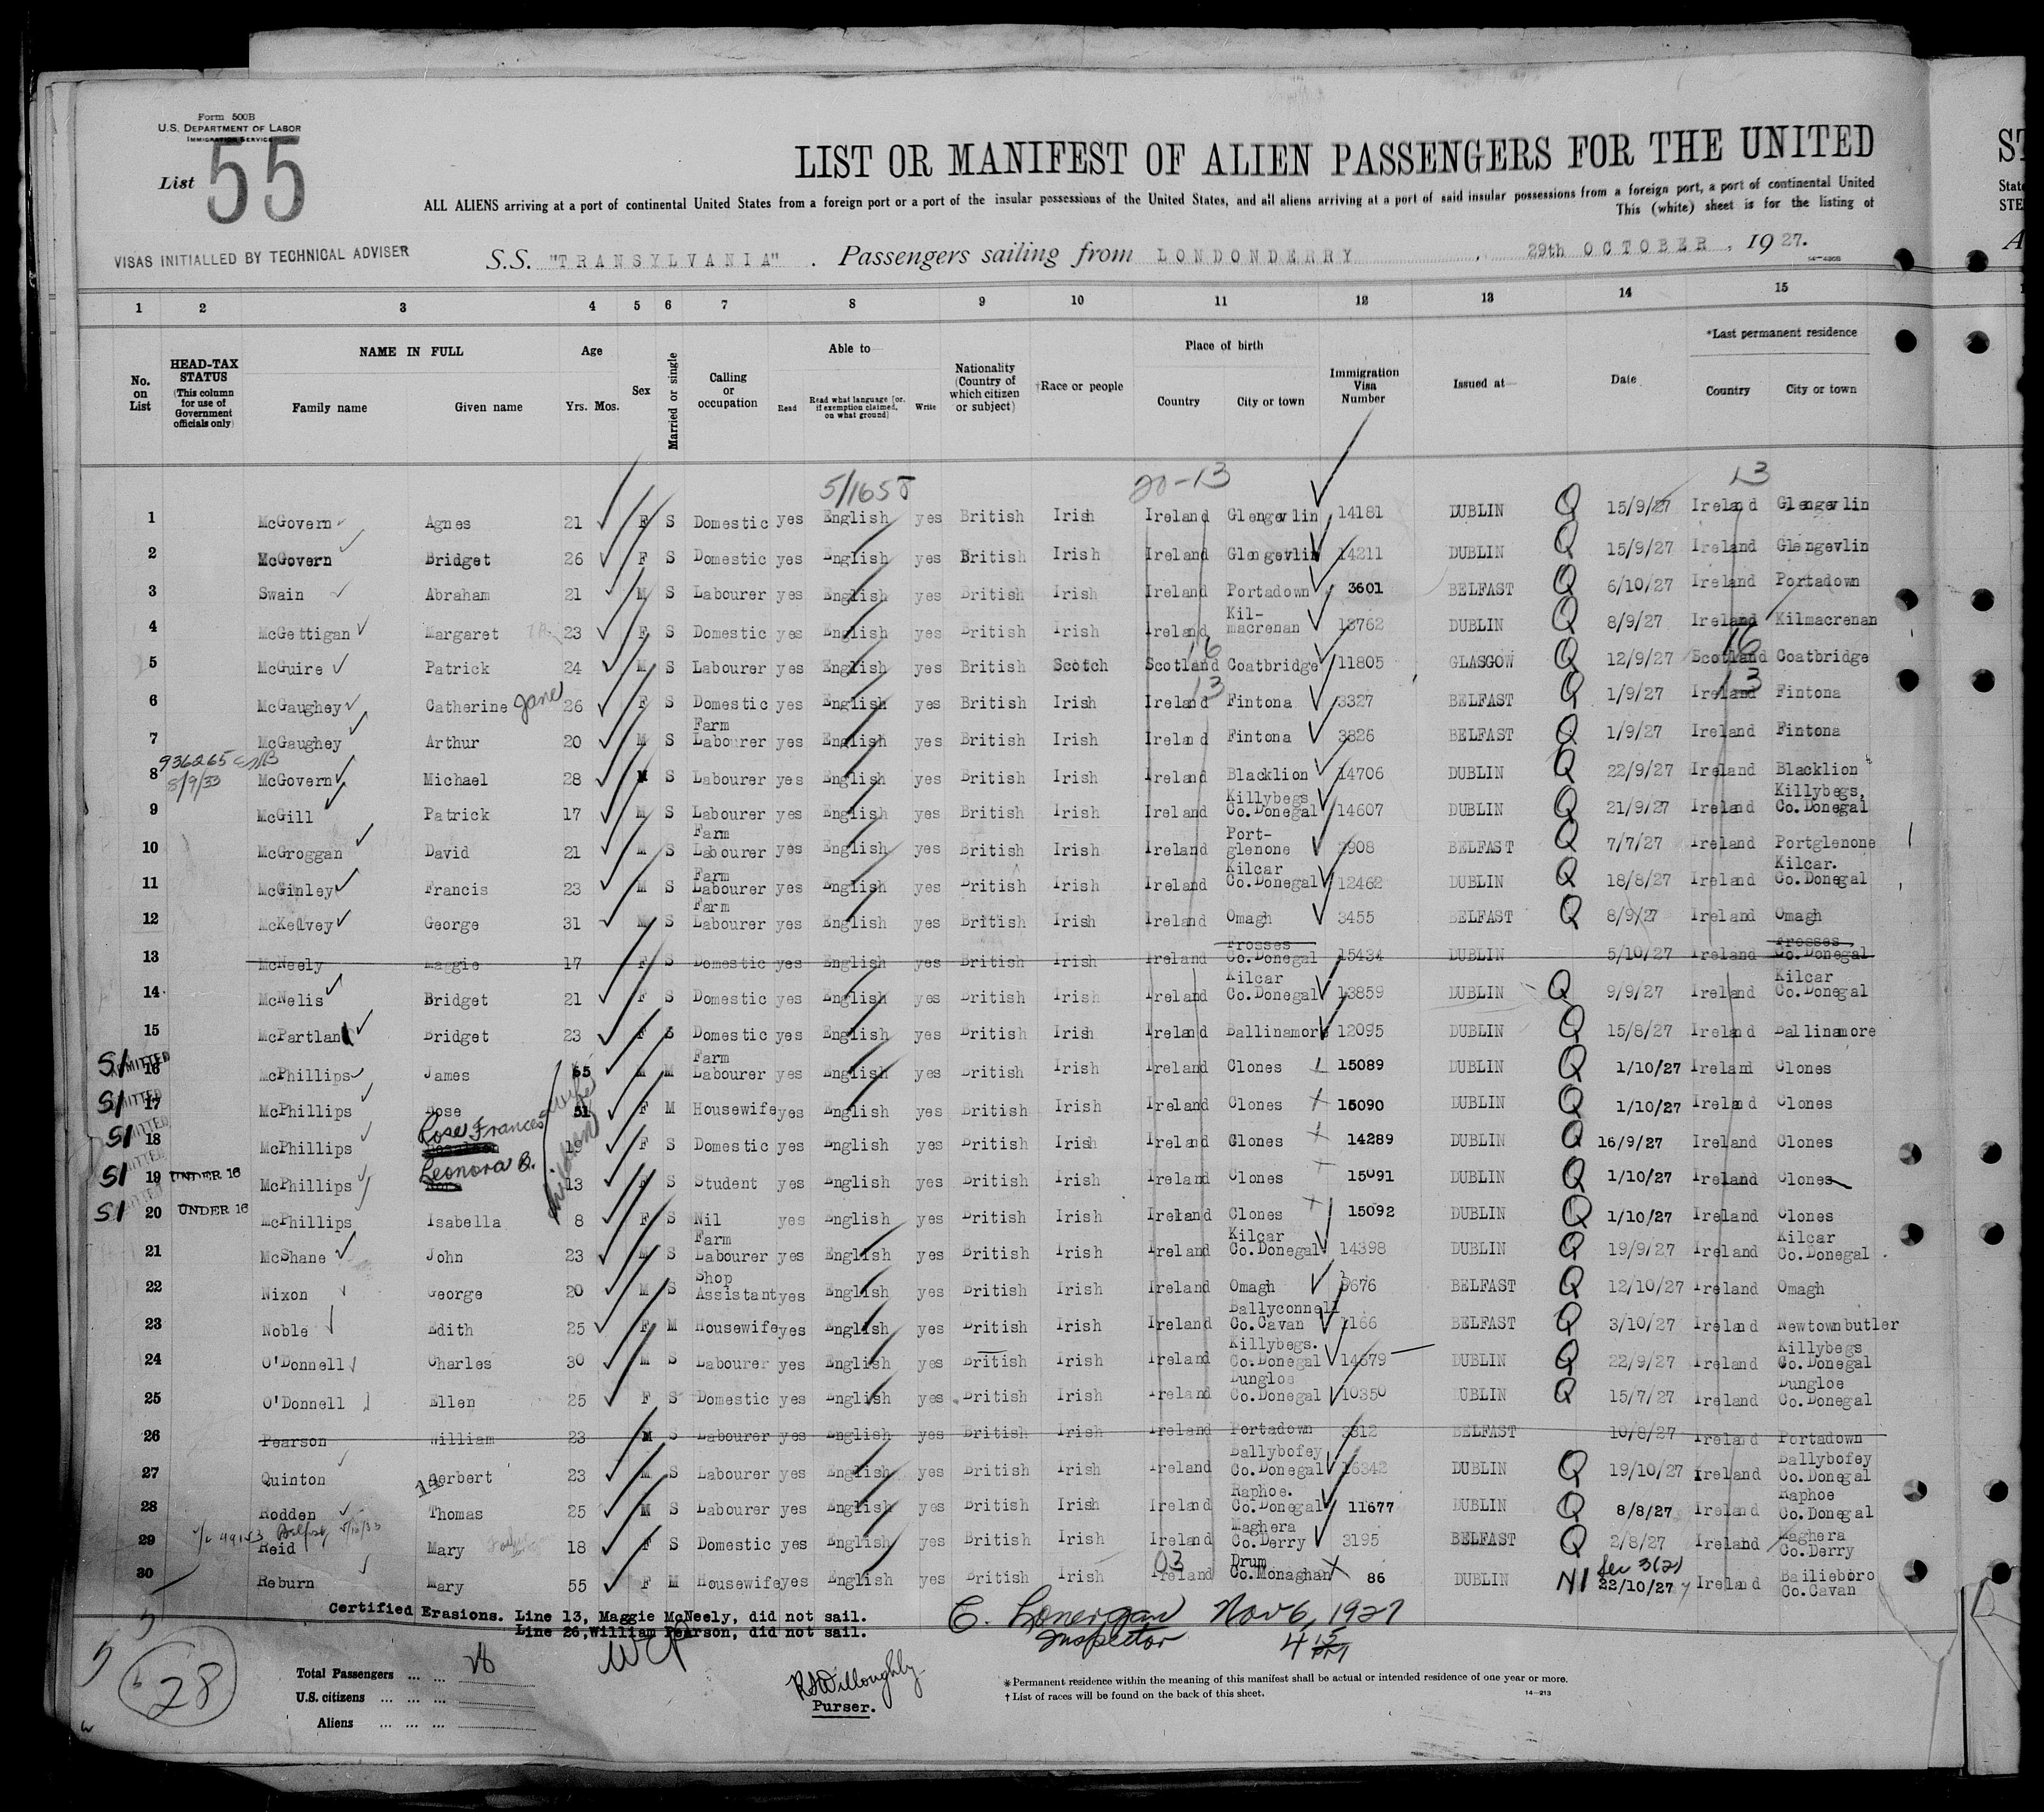 Form 500B
U.S. DEPARTMENT OF LABOR
IMMIGRATION SERVICE
List 55
LIST OR MANIFEST OF ALIEN PASSENGERS FOR THE UNITED
ALL ALIENS arriving at a port of continental United States from a foreign port or a port of the insular possessions of the United States, and all aliens arriving at a port of said insular possessions from a foreign port, a port of continental United
This (white) sheet is for the listing of
VISAS INITIALLED BY TECHNICAL ADVISER
S.S. "TRANSYLVANIA". Passengers sailing from LONDONDERRY, 29th OCTOBER, 1927.
1 2 3 4 5 6 7 8 9 10 11 12 13 14 15
No. on List
HEAD-TAX STATUS (This column for use of Government officials only)
NAME IN FULL Family name Given name
Age Yrs. Mos.
Sex
Married or single
Calling or occupation
Able to Read Read what language [or, if exemption claimed, on what ground] Write
Nationality (Country of which citizen or subject)
†Race or people
Place of birth Country City or town
Immigration Visa Number
Issued at
Date
*Last permanent residence Country City or town
20-13 13
1 McGovern Agnes 21 F S Domestic yes English yes British Irish Ireland Glengevlin 14181 DUBLIN Q 15/9/27 Ireland Glengevlin
2 McGovern Bridget 26 F S Domestic yes English yes British Irish Ireland Glengevlin 14211 DUBLIN Q 15/9/27 Ireland Glengevlin
3 Swain Abraham 21 M S Labourer yes English yes British Irish Ireland Portadown 3601 BELFAST Q 6/10/27 Ireland Portadown
4 McGettigan Margaret 23 F S Domestic yes English yes British Irish Ireland Kil-macrenan 13762 DUBLIN Q 8/9/27 Ireland Kilmacrenan
5 McGuire Patrick 24 M S Labourer yes English yes British Scotch Scotland 16 Coatbridge 11805 GLASGOW Q 12/9/27 Scotland 16 Coatbridge
6 McGaughey Catherine Jane 26 F S Domestic yes English yes British Irish Ireland 13 Fintona 3327 BELFAST Q 1/9/27 Ireland 13 Fintona
7 McGaughey Arthur 20 M S Farm Labourer yes English yes British Irish Ireland Fintona 3826 BELFAST Q 1/9/27 Ireland Fintona
936265 8/9/33
8 McGovern Michael 28 M S Labourer yes English yes British Irish Ireland Blacklion 14706 DUBLIN Q 22/9/27 Ireland Blacklion
9 McGill Patrick 17 M S Labourer yes English yes British Irish Ireland Killybegs Co.Donegal 14607 DUBLIN Q 21/9/27 Ireland Killybegs, Co.Donegal
10 McGroggan David 21 M S Farm Labourer yes English yes British Irish Ireland Port-glenone 2908 BELFAST Q 7/7/27 Ireland Portglenone
11 McGinley Francis 23 M S Farm Labourer yes English yes British Irish Ireland Kilcar Co.Donegal 12462 DUBLIN Q 18/8/27 Ireland Kilcar. Co.Donegal
12 McKelvey George 31 M S Farm Labourer yes English yes British Irish Ireland Omagh 3455 BELFAST Q 8/9/27 Ireland Omagh
13 McNeely Maggie 17 F S Domestic yes English yes British Irish Ireland Frosses Co.Donegal 15434 DUBLIN 5/10/27 Ireland Frosses Co.Donegal
14 McNelis Bridget 21 F S Domestic yes English yes British Irish Ireland Kilcar Co.Donegal 13859 DUBLIN Q 9/9/27 Ireland Kilcar Co.Donegal
15 McPartlan Bridget 23 F S Domestic yes English yes British Irish Ireland Ballinamore 12095 DUBLIN Q 15/8/27 Ireland Ballinamore
SI ADMITTED 16 McPhillips James 55 M M Farm Labourer yes English yes British Irish Ireland Clones 15089 DUBLIN Q 1/10/27 Ireland Clones
SI ADMITTED 17 McPhillips Rose wife 51 F M Housewife yes English yes British Irish Ireland Clones 15090 DUBLIN Q 1/10/27 Ireland Clones
SI ADMITTED 18 McPhillips Rose Frances children 19 F S Domestic yes English yes British Irish Ireland Clones 14289 DUBLIN Q 16/9/27 Ireland Clones
SI ADMITTED 19 UNDER 16 McPhillips Leonora B. 13 F S Student yes English yes British Irish Ireland Clones 15091 DUBLIN Q 1/10/27 Ireland Clones
SI ADMITTED 20 UNDER 16 McPhillips Isabella 8 F S Nil yes English yes British Irish Ireland Clones 15092 DUBLIN Q 1/10/27 Ireland Clones
21 McShane John 23 M S Farm Labourer yes English yes British Irish Ireland Kilcar Co.Donegal 14398 DUBLIN Q 19/9/27 Ireland Kilcar Co.Donegal
22 Nixon George 20 M S Shop Assistant yes English yes British Irish Ireland Omagh 3676 BELFAST Q 12/10/27 Ireland Omagh
23 Noble Edith 25 F M Housewife yes English yes British Irish Ireland Ballyconnell Co.Cavan 1166 BELFAST Q 3/10/27 Ireland Newtownbutler
24 O'Donnell Charles 30 M S Labourer yes English yes British Irish Ireland Killybegs. Co.Donegal 14679 DUBLIN Q 22/9/27 Ireland Killybegs Co.Donegal
25 O'Donnell Ellen 25 F S Domestic yes English yes British Irish Ireland Dungloe Co.Donegal 10350 DUBLIN Q 15/7/27 Ireland Dungloe Co.Donegal
26 Pearson William 23 M S Labourer yes English yes British Irish Ireland Portadown 3312 BELFAST 10/8/27 Ireland Portadown
27 Quinton Herbert 23 M S Labourer yes English yes British Irish Ireland Ballybofey Co.Donegal 16342 DUBLIN Q 19/10/27 Ireland Ballybofey Co.Donegal
28 Rodden Thomas 25 M S Labourer yes English yes British Irish Ireland Raphoe. Co.Donegal 11677 DUBLIN Q 8/8/27 Ireland Raphoe Co.Donegal
29 Reid Mary 18 F S Domestic yes English yes British Irish Ireland Maghera Co.Derry 3195 BELFAST Q 2/8/27 Ireland Maghera Co.Derry
30 Reburn Mary 55 F M Housewife yes English yes British Irish Ireland 03 Drum Co.Monaghan 86 DUBLIN NI Sec 3(2) 22/10/27 Ireland Bailieboro Co.Cavan
Certified Erasions. Line 13, Maggie McNeely, did not sail.
Line 26, William Pearson, did not sail.
C. Lonergan Nov 6, 1927
Inspector 4 15 PM
28
Total Passengers ... ... 28
U.S. citizens ... ... ...
Aliens ... ... ...
R Willoughby
Purser.
* Permanent residence within the meaning of this manifest shall be actual or intended residence of one year or more.
† List of races will be found on the back of this sheet. 14-213